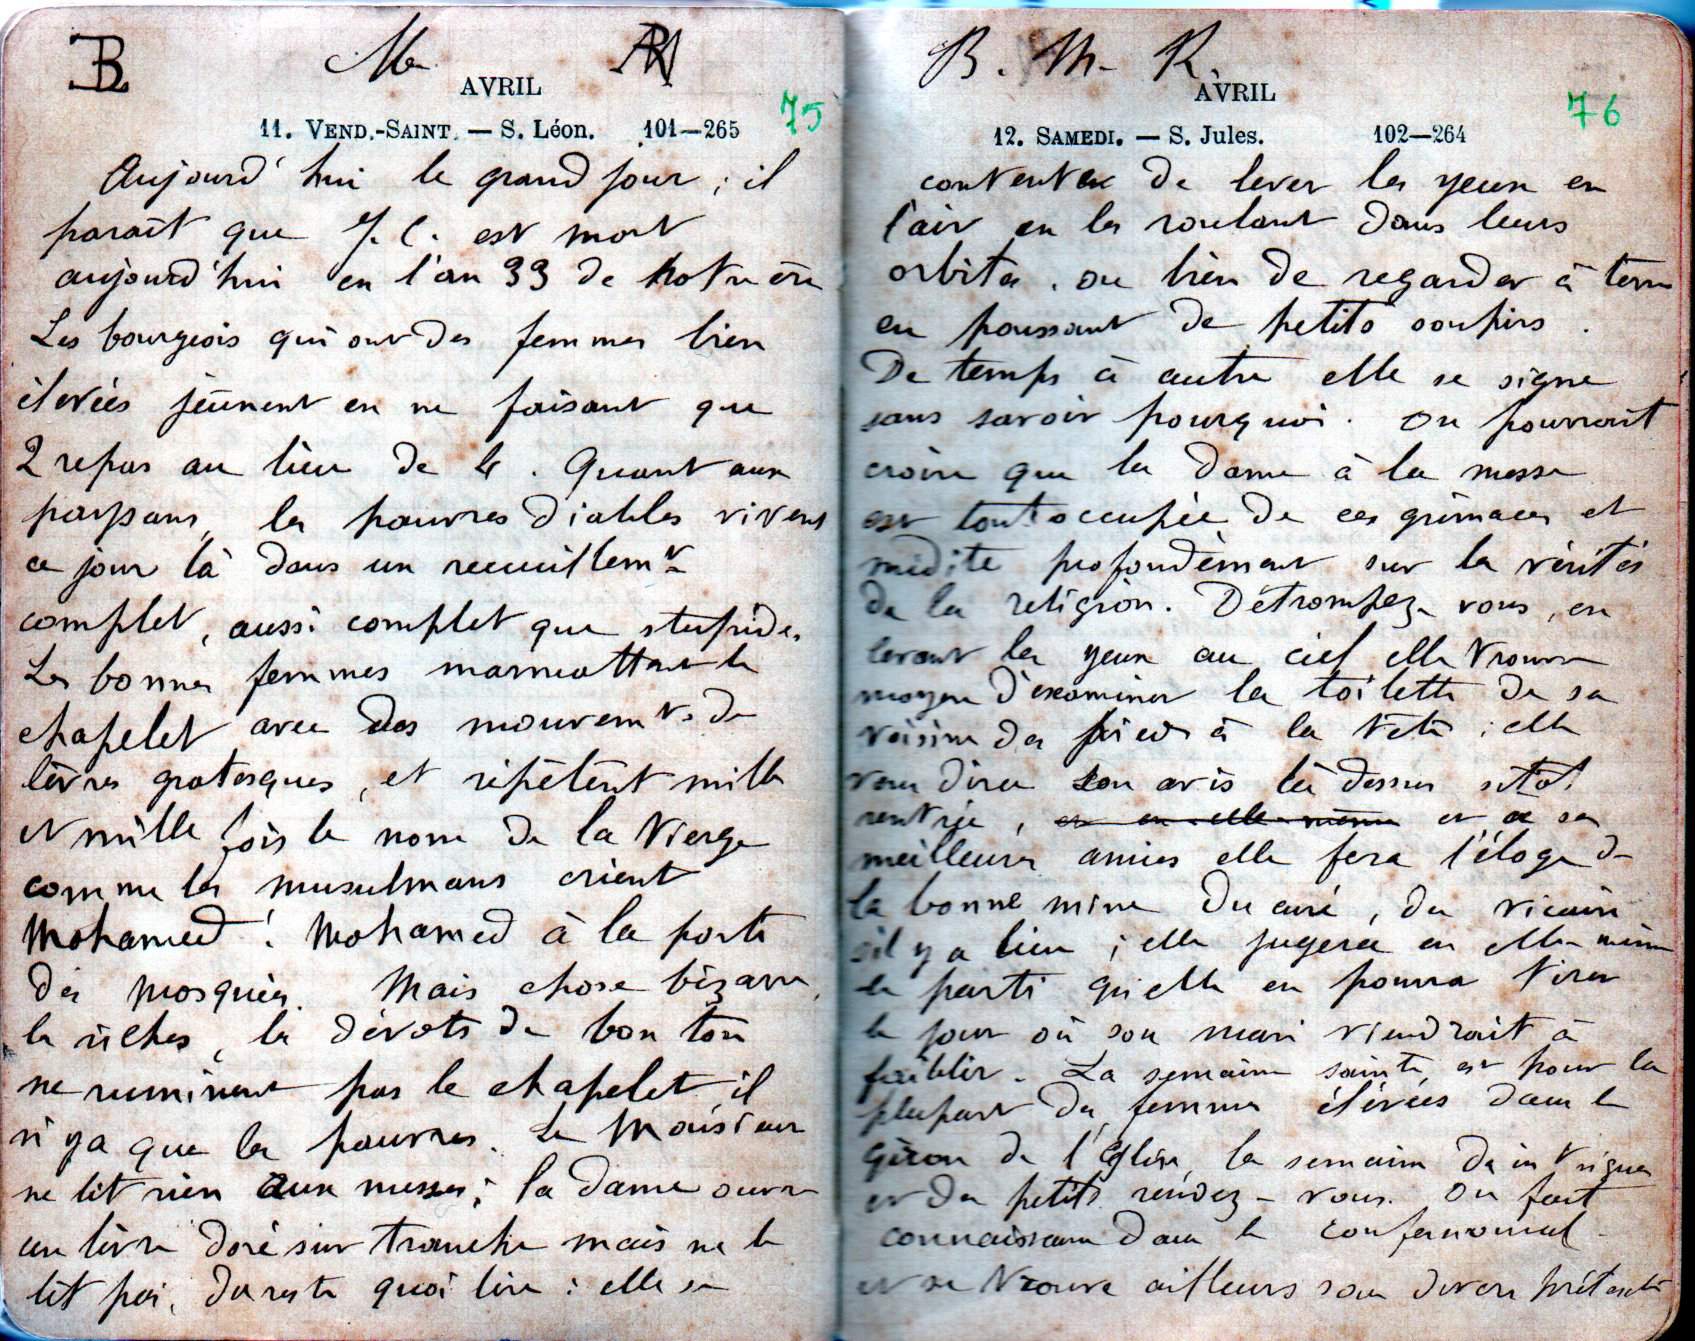 B Mb RN
AVRIL
75
11. VEND.-SAINT. — S. Léon. 101—265
Aujourd'hui le grand jour ; il
paraît que J. C. est mort
aujourd'hui en l'an 33 de notre ère
Les bourgeois qui ont des femmes bien
élevées jeûnent en ne faisant que
2 repas au lieu de 4. Quant aux
paysans, les pauvres diables vivent
ce jour là dans un recueillemt
complet, aussi complet que stupide.
Les bonnes femmes marmottent le
chapelet avec des mouvemts de
lèvres grotesques, et répètent mille
et mille fois le nom de la Vierge
comme les musulmans crient
Mohamed ! Mohamed à la porte
des mosquées. Mais chose bizarre,
les riches, les dévots de bon ton
ne ruminent pas le chapelet il
n'y a que les pauvres. Le Monsieur
ne lit rien aux messes ; la dame ouvre
un livre doré sur tranche mais ne le
lit pas, du reste quoi lire : elle se
B. M. R.
AVRIL
76
12. SAMEDI. — S. Jules. 102—264
contente de lever les yeux en
l'air en les roulant dans leurs
orbites, ou bien de regarder à terre
en poussant de petits soupirs.
De temps à autre elle se signe
sans savoir pourquoi. On pourrait
croire que la dame à la messe
est tout occupée de ces grimaces et
médite profondément sur les vérités
de la religion. Détrompez-vous, en
levant les yeux au ciel elle trouve
moyen d'examiner la toilette de sa
voisine des pieds à la tête ; elle
vous dira son avis là dessus sitôt
rentrée, et en elle-même et à ses
meilleures amies elle fera l'éloge de
la bonne mine du curé, du vicaire
s'il y a lieu ; elle jugera en elle-même
le parti qu'elle en pourra tirer
le jour où son mari viendrait à
faiblir. La semaine sainte est pour la
plupart des femmes élevées dans le
giron de l'Eglise, la semaine des intrigues
et des petits rendez-vous. On fait
connaissance dans le confessionnal
et se trouve ailleurs sous divers prétextes